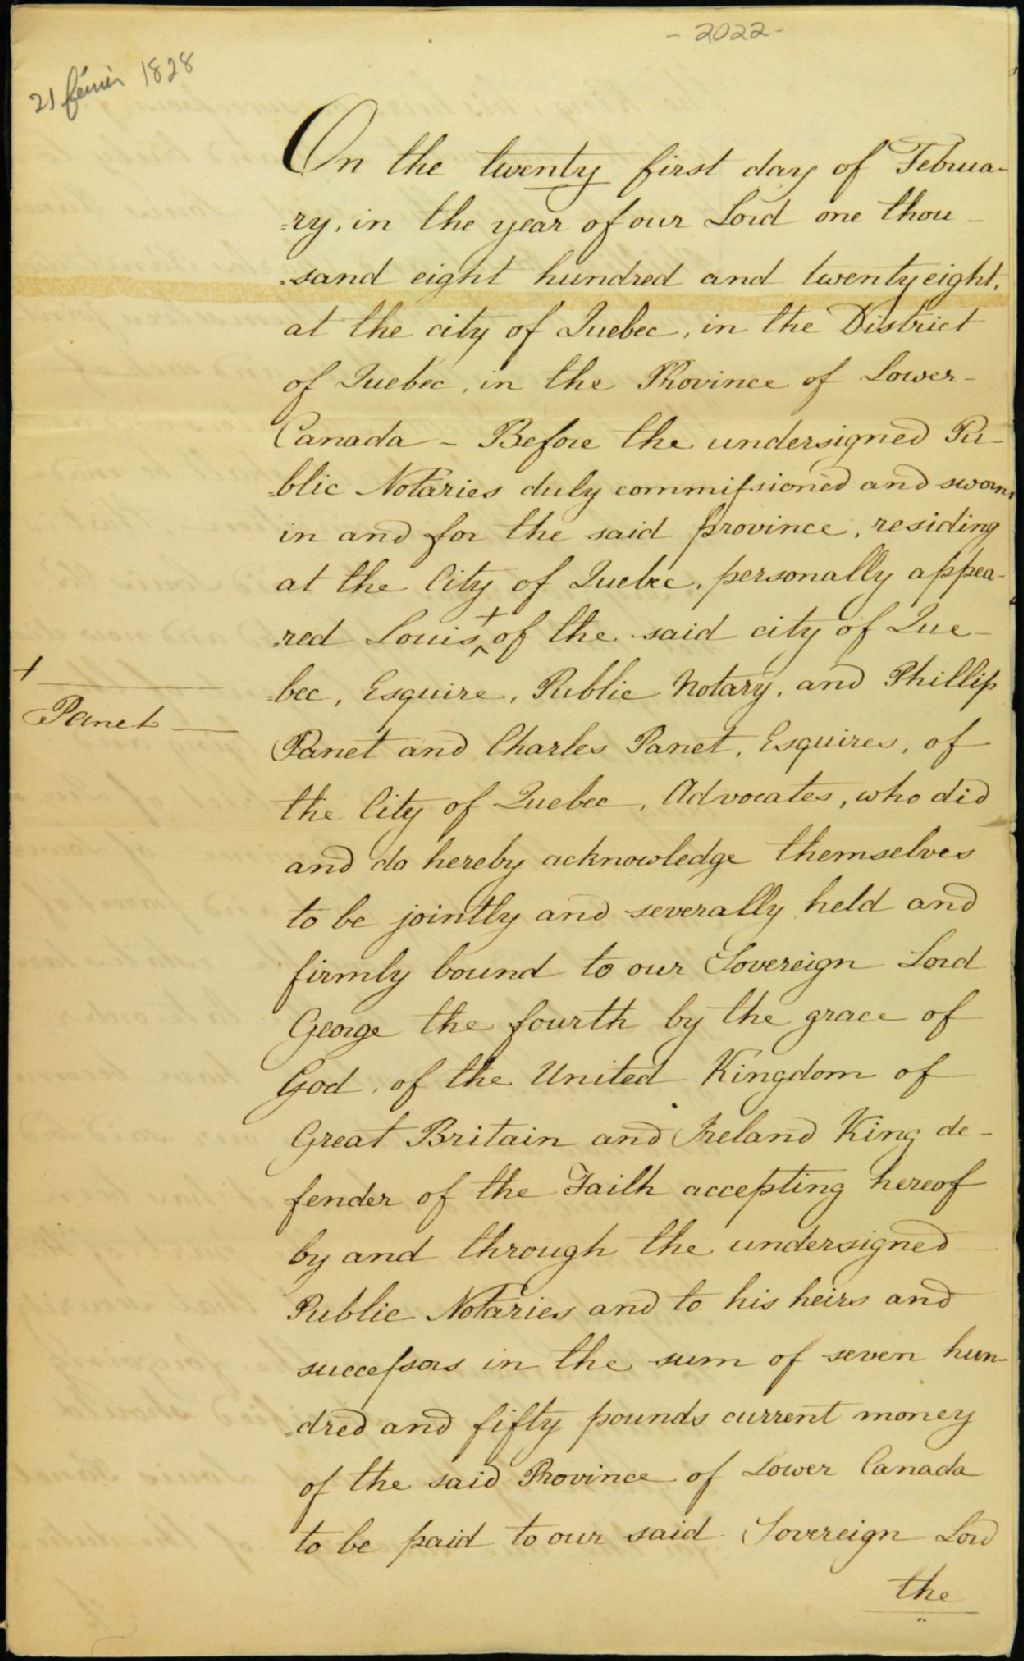 - 2022 -
21 février 1828
On the twenty first day of Februa-
-ry, in the year of our Lord one thou-
-sand eight hundred and twenty eight,
at the city of Quebec, in the District
of Quebec, in the Province of Lower-
Canada - Before the undersigned Pu-
-blic Notaries duly commissioned and sworn,
in and for the said province, residing
at the City of Quebec, personally appea-
-red Louis + ^ of the said city of Que-
-bec, Esquire, Public Notary, and Phillip
+
Panet
Panet and Charles Panet, Esquires, of
the City of Quebec, Advocates, who did
and do hereby acknowledge themselves
to be jointly and severally held and
firmly bound to our Sovereign Lord
George the fourth by the grace of
God, of the United Kingdom of
Great Britain and Ireland King de-
fender of the Faith accepting hereof
by and through the undersigned
Public Notaries and to his heirs and
successors in the sum of seven hun-
-dred and fifty pounds current money
of the said Province of Lower Canada
to be paid to our said Sovereign Lord
the